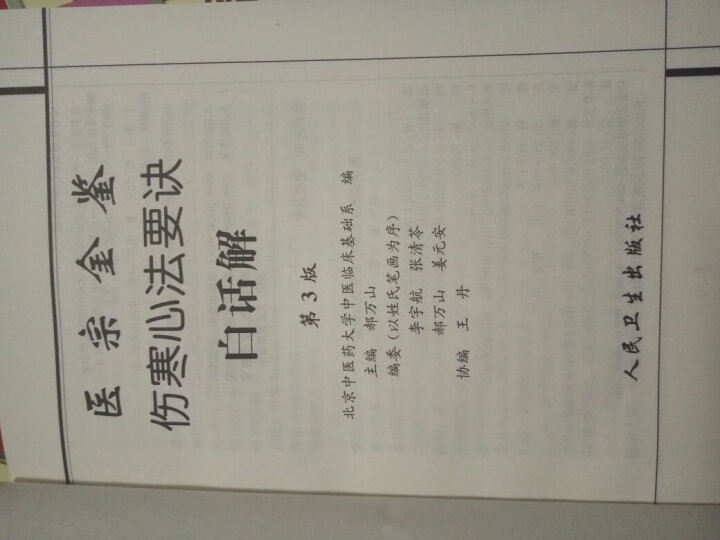 医宗金鉴
伤寒心法要诀
白话解
第3版
北京中医药大学中医临床基础系 编
主编 郝万山
编委（以姓氏笔画为序）
李宇航 张清苓
郝万山 姜元安
协编 王丹
人民卫生出版社